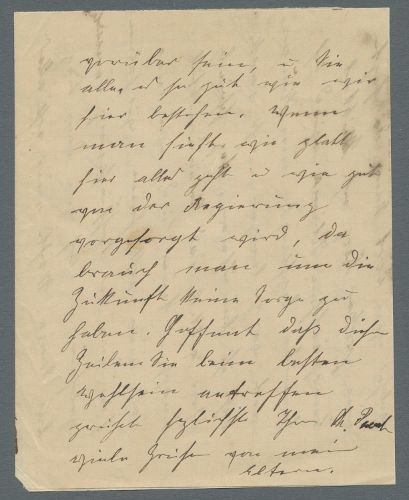 vorüber sein, u Sie
alles so gut wie wir
hier bestehen. Wenn
man sieht wie glatt
hier alles geht u wie gut
von der Regierung
vorgesorgt wird, da
brauch man um die
Zukunft keine Sorge zu
haben. Hoffend daß diese
Zeilen Sie beim besten
Wohlsein antreffen
grüßt herzlichst Ihr
viele Grüße von mein
Eltern.